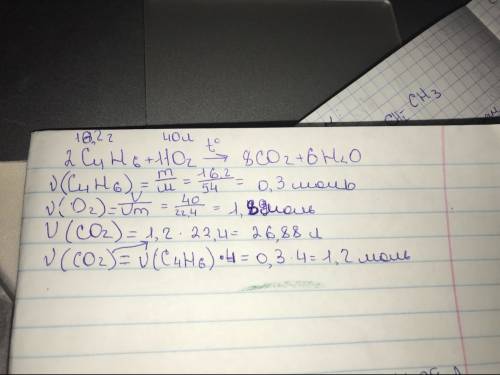 16,2г 40л
2C4H6+11O2 t° → 8CO2+6H2O
ν(C4H6) = m/M = 16,2/54 = 0,3 моль
ν(O2) = V/Vm = 40/22,4 = 1,89 моль
V(CO2) = 1,2 · 22,4 = 26,88 л
ν(CO2) = ν(C4H6) · 4 = 0,3 · 4 = 1,2 моль
CH3